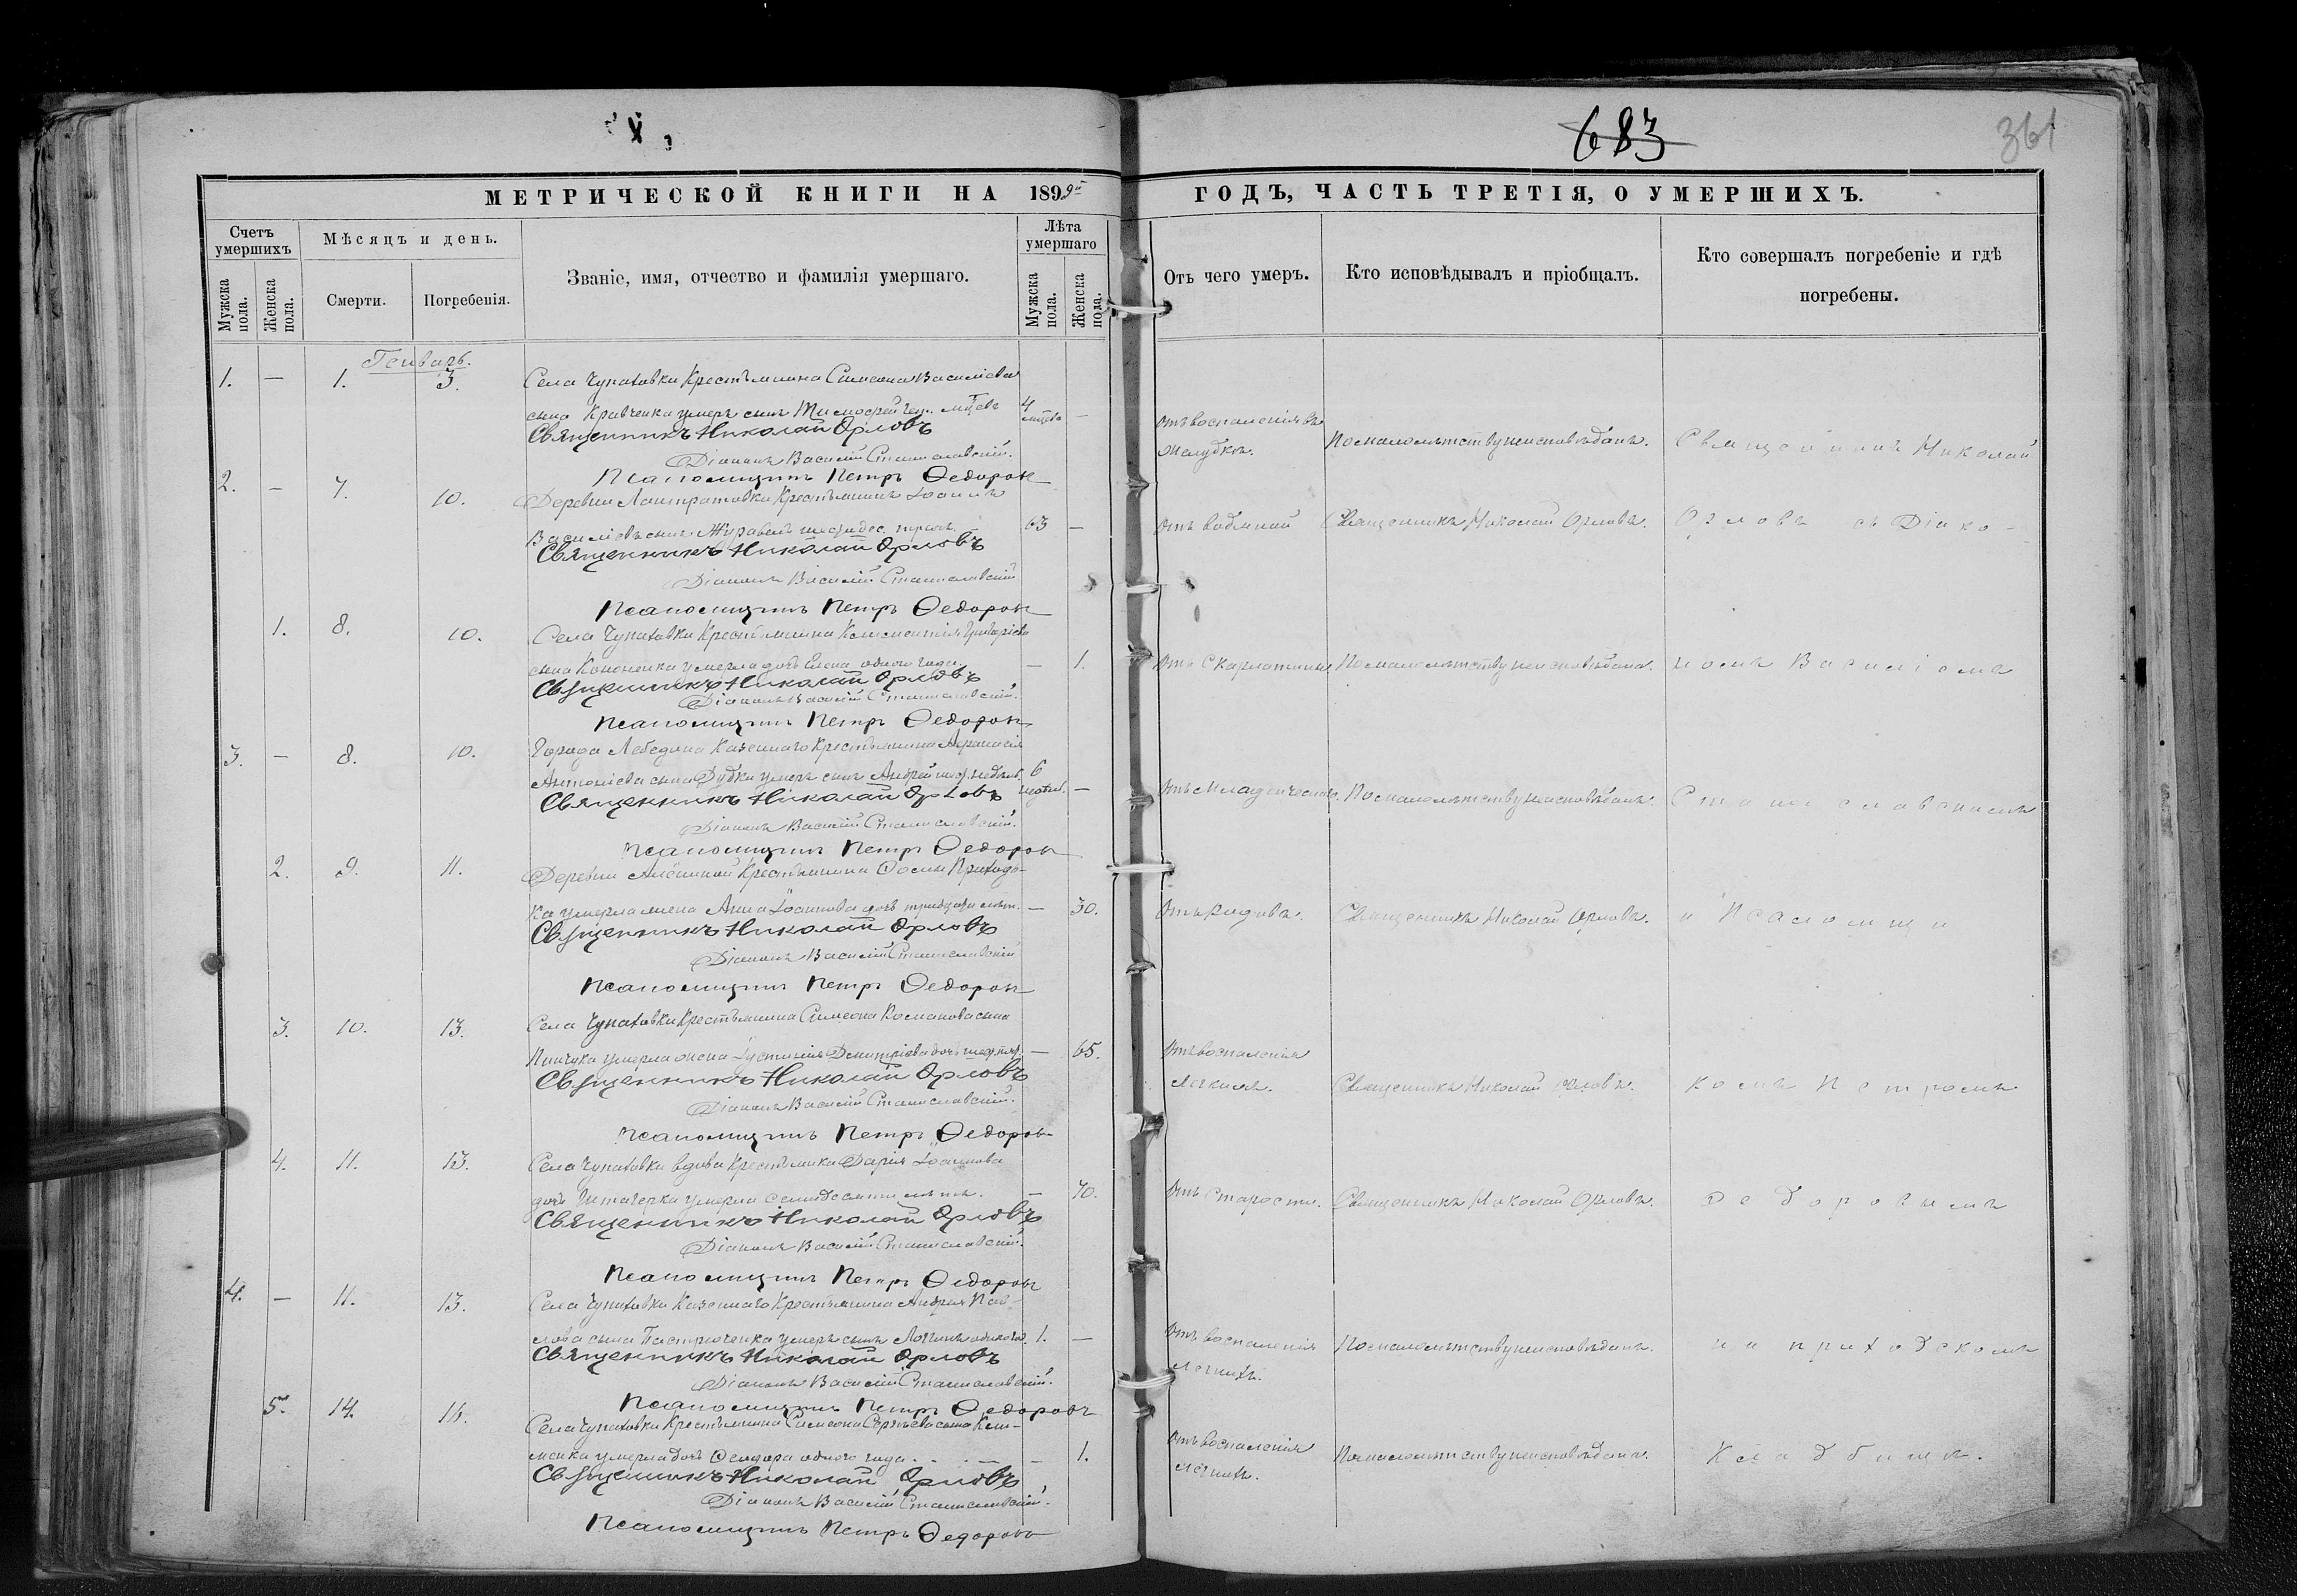 683
361
МЕТРИЧЕСКОЙ КНИГИ НА 1899й ГОДЪ, ЧАСТЬ ТРЕТІЯ, О УМЕРШИХЪ.
Счетъ умершихъ
Мѣсяцъ и день.
Званіе, имя, отчество и фамилія умершаго.
Лѣта умершаго
Отъ чего умеръ.
Кто исповѣдывалъ и пріобщалъ.
Кто совершалъ погребеніе и гдѣ
погребены.
Мужска пола.
Женска пола.
Смерти.
Погребенія.
Мужска пола.
Женска пола.
Генварь.
1. — 1. 3. Села Чупаховки Крестьянина Симеона Василіева
сына Кравченка умеръ сынъ Тимофей чет. мцевъ 4 мцевъ —
Отъ воспаленія въ
желудкѣ.
По малолѣтству неисповѣданъ.
Священникъ Николай
Священникъ Николай Орловъ
Діаконъ Василій Станиславскій.
Псаломщикъ Петръ Федоровъ
2. — 7. 10. Деревни Лантратовки Крестьянинъ Іоаннъ
Василіевъ сынъ Журавель шестьдес. трехъ 63 —
Отъ водяной
Священникъ Николай Орловъ.
Орловъ съ Діако-
Священникъ Николай Орловъ
Діаконъ Василій Станиславскій
Псаломщикъ Петръ Федоровъ
1. 8. 10. Села Чупаховки Крестьянина Климентія Григоріева
сына Кононенка умерла дочь Елена одного года. — 1.
Отъ Скарлатины
По малолѣтству неисповѣдана.
номъ Василіемъ
Священникъ Николай Орловъ
Діаконъ Василій Станиславскій.
Псаломщикъ Петръ Федоровъ
3. — 8. 10. Города Лебедина Казеннаго Крестьянина Афанасія
Антоніева сына Дудки умеръ сынъ Андрей шес. недѣль. 6 недѣл. —
Отъ Младенческой.
По малолѣтству неисповѣданъ.
Станиславскимъ
Священникъ Николай Орловъ
Діаконъ Василій Станиславскій.
Псаломщикъ Петръ Федоровъ
2. 9. 11. Деревни Алёшиной Крестьянина Фомы Приходь-
ка умерла жена Анна Іоаннова дочь тридцати лѣт. — 30.
Отъ Родовъ.
Священникъ Николай Орловъ.
и Псаломщи
Священникъ Николай Орловъ
Діаконъ Василій Станиславскій
Псаломщикъ Петръ Федоровъ
3. 10. 13. Села Чупаховки Крестьянина Симеона Косманова сына
умерла жена Іустинія Димитріева дочь — 65.
Отъ воспаленія
легкихъ.
Священникъ Николай Орловъ.
комъ Петромъ
Священникъ Николай Орловъ
Діаконъ Василій Станиславскій.
Псаломщикъ Петръ Федоровъ
4. 11. 13. Села Чупаховки вдова Крестьянка Дарія Іоаннова
дочь умерла семидесяти лѣтъ. — 70.
Отъ Старости.
Священникъ Николай Орловъ.
Федоровымъ
Священникъ Николай Орловъ
Діаконъ Василій Станиславскій.
Псаломщикъ Петръ Федоровъ
4. — 11. 13. Села Чупаховки Казеннаго Крестьянина Андрея Пав-
лова сына Пастрюченка умеръ сынъ Логинъ одного г. 1. —
Отъ воспаленія
легкихъ.
По малолѣтству неисповѣданъ.
на приходскомъ
Священникъ Николай Орловъ
Діаконъ Василій Станиславскій.
Псаломщикъ Петръ Федоровъ
5. 14. 16. Села Чупаховки Крестьянина Симеона Сергѣева сына Кли-
менка умерла дочь Феодора одного года. — 1.
Отъ воспаленія
легкихъ.
По малолѣтству неисповѣдана.
Кладбищѣ.
Священникъ Николай Орловъ
Діаконъ Василій Станиславскій.
Псаломщикъ Петръ Федоровъ